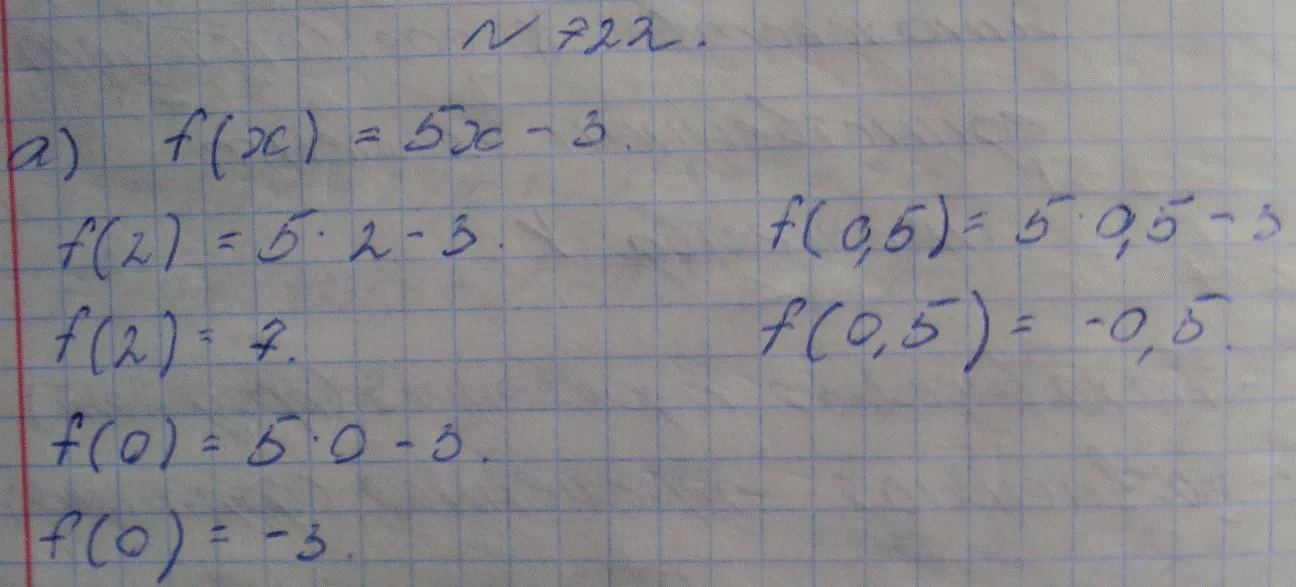 № 722.
а) f(x) = 5x - 3.
f(2) = 5 · 2 - 3.
f(2) = 7.
f(0) = 5 · 0 - 3.
f(0) = -3.
f(0,5) = 5 · 0,5 - 3
f(0,5) = -0,5.